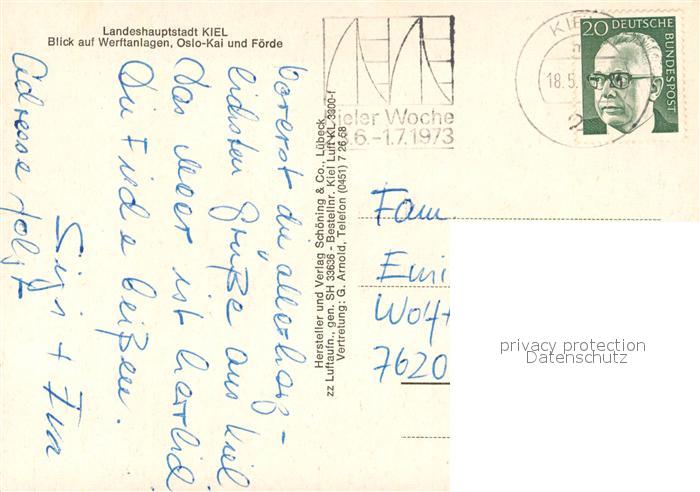 Landeshauptstadt KIEL
Blick auf Werftanlagen, Oslo-Kai und Förde
Vorerst die „allerherz-
lichsten Grüße aus Kiel
Das Meer ist herrlich
Die Fische beißen.
Sigi +
Adresse folgt
Hersteller und Verlag Schöning & Co., Lübeck
zz Luftaufn., gen. SH 33636 - Bestellnr. Kiel Luft KL 3300-f
Vertretung: G. Arnold, Telefon (0451) 7 26 68
Kieler Woche
.6.-1.7.1973
KIEL
18.5.
2
20 DEUTSCHE
BUNDESPOST
Fam.
Emi
Wolf
7620
privacy protection
Datenschutz